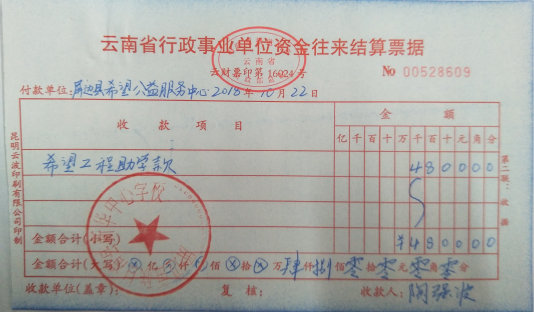 云南省行政事业单位资金往来结算票据
云南省
云财票印第16024号
No 00528609
付款单位:屏边县希望公益服务中心 2018年10月22日
收款项目 金额
亿千百十万千百十元角分
希望工程助学款 480000
金额合计(小写) ¥480000
金额合计(大写):ⓧ亿ⓧ仟ⓧ佰ⓧ拾ⓧ万肆仟捌佰零拾零元零角零分
收款单位(盖章): 复核: 收款人:陶强波
第二联:收据
昆明云波印刷有限公司印制
华中心学校